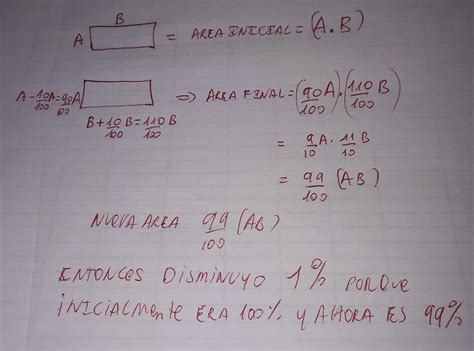 B
A = AREA INICIAL = (A.B)
A - 10/100 A = 90/100 A => AREA FINAL = (90/100 A) . (110/100 B)
B + 10/100 B = 110/100 B
= 9/10 A . 11/10 B
= 99/100 (AB)
NUEVA AREA 99/100 (AB)
ENTONCES DISMINUYO 1% PORQUE
INICIALMENTE ERA 100% Y AHORA ES 99%